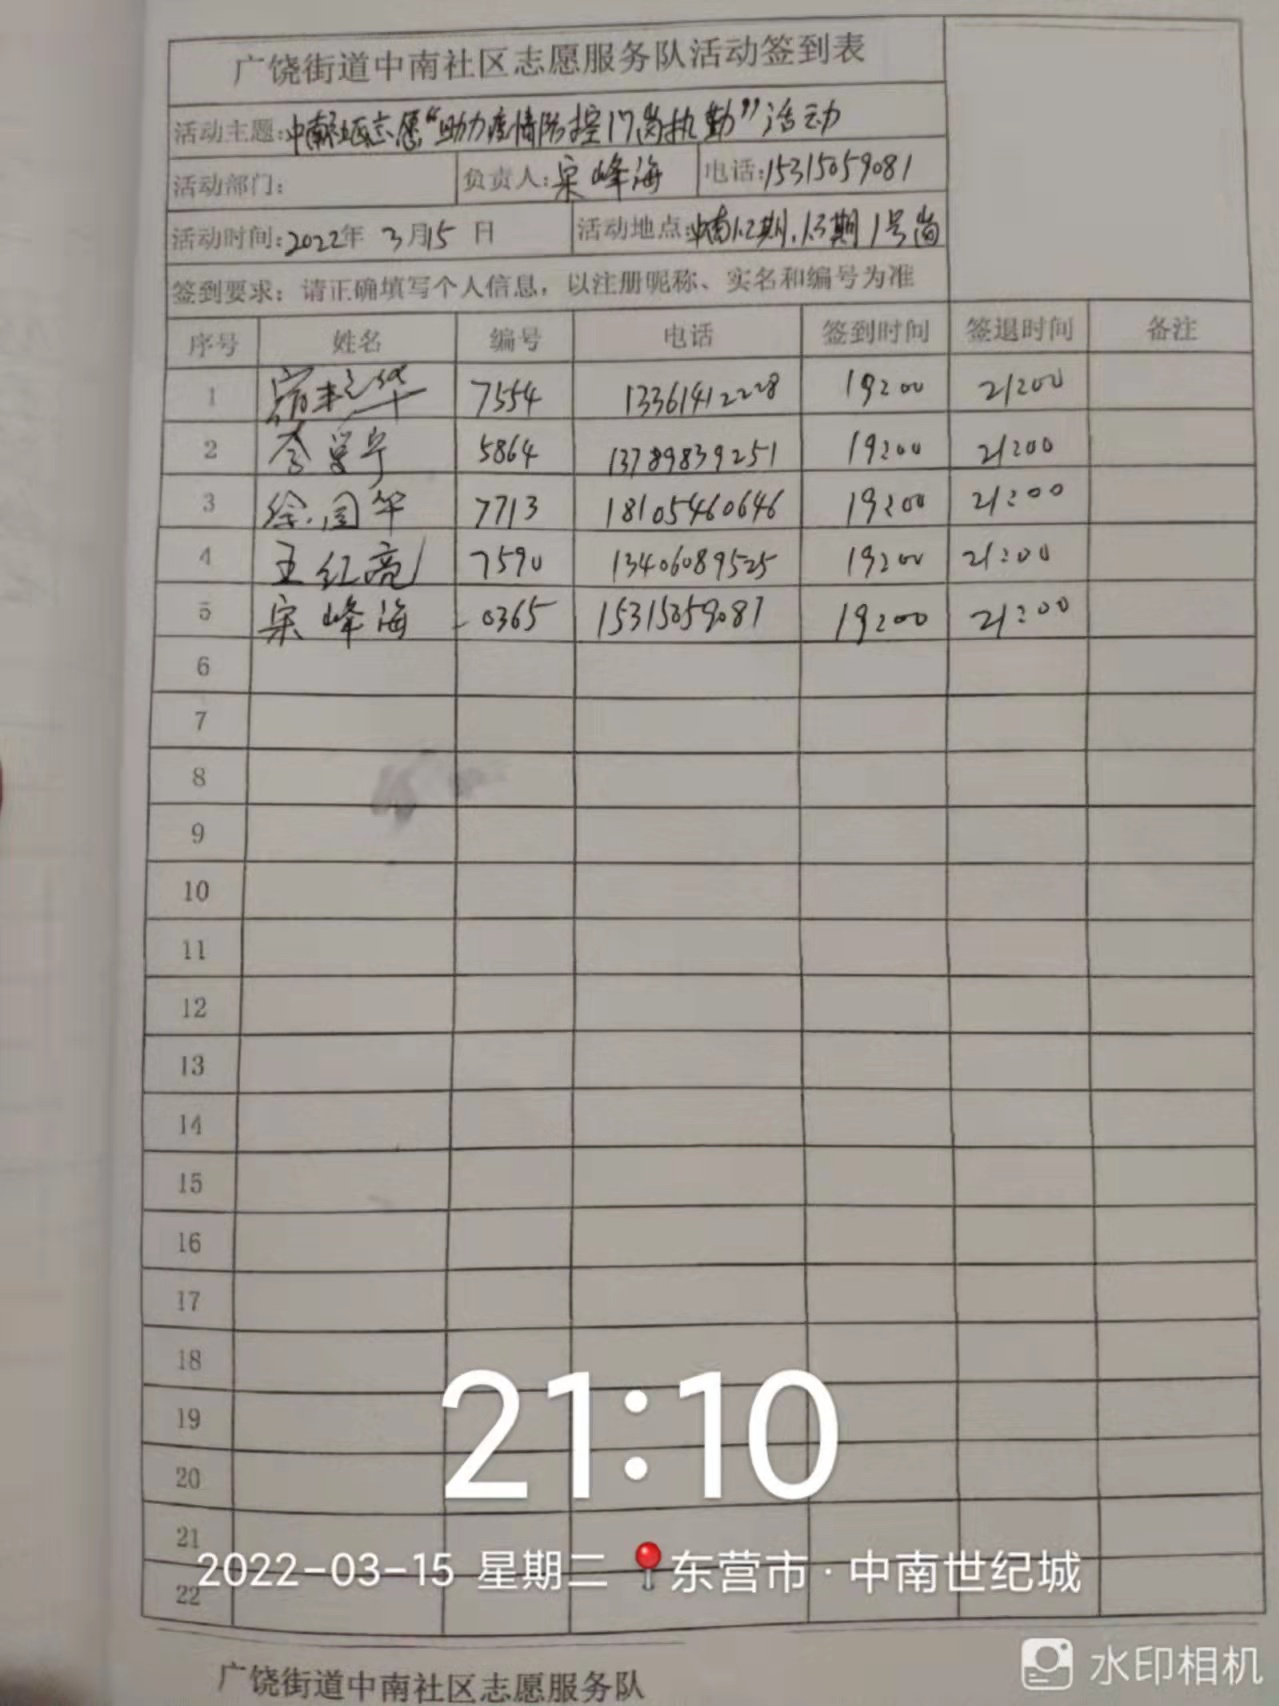 广饶街道中南社区志愿服务队活动签到表
活动主题:中南社区志愿“助力疫情防控门岗执勤”活动
活动部门: 负责人:宋峰海 电话:15315059081
活动时间:2022年 3月15日 活动地点:中南1.2期.1.3期1号岗
签到要求:请正确填写个人信息,以注册昵称、实名和编号为准
序号 姓名 编号 电话 签到时间 签退时间 备注
1 7554 13361412228 19:00 21:00
2 5864 13789839251 19:00 21:00
3 徐国华 7713 18105460646 19:00 21:00
4 王红亮 7590 13406089525 19:00 21:00
5 宋峰海 0365 15315059081 19:00 21:00
6
7
8
9
10
11
12
13
14
15
16
17
18
19
20
21
22
21:10
2022-03-15 星期二 东营市·中南世纪城
广饶街道中南社区志愿服务队
水印相机